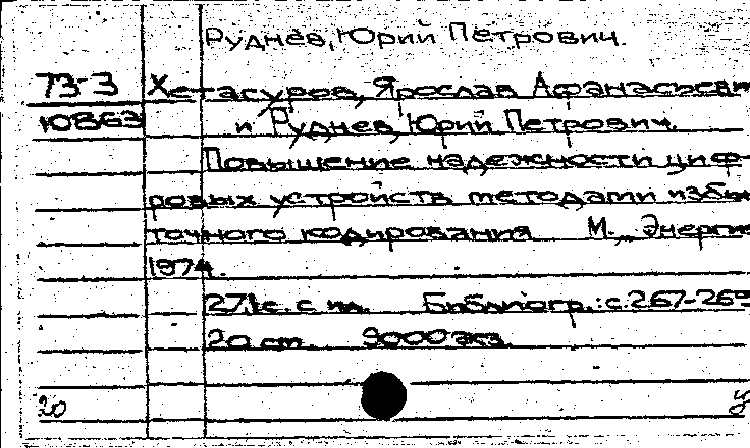 Руднев, Юрий Петрович.
73-3 Хетагуров, Ярослав Афанасьеви
10863 и Руднев, Юрий Петрович.
Повышение надежности циф-
ровых устройств методами избы-
точного кодирования М., Энергия
1974.
271с. с ил. Библиогр.: с.267-269
20 см. 9000 экз.
20